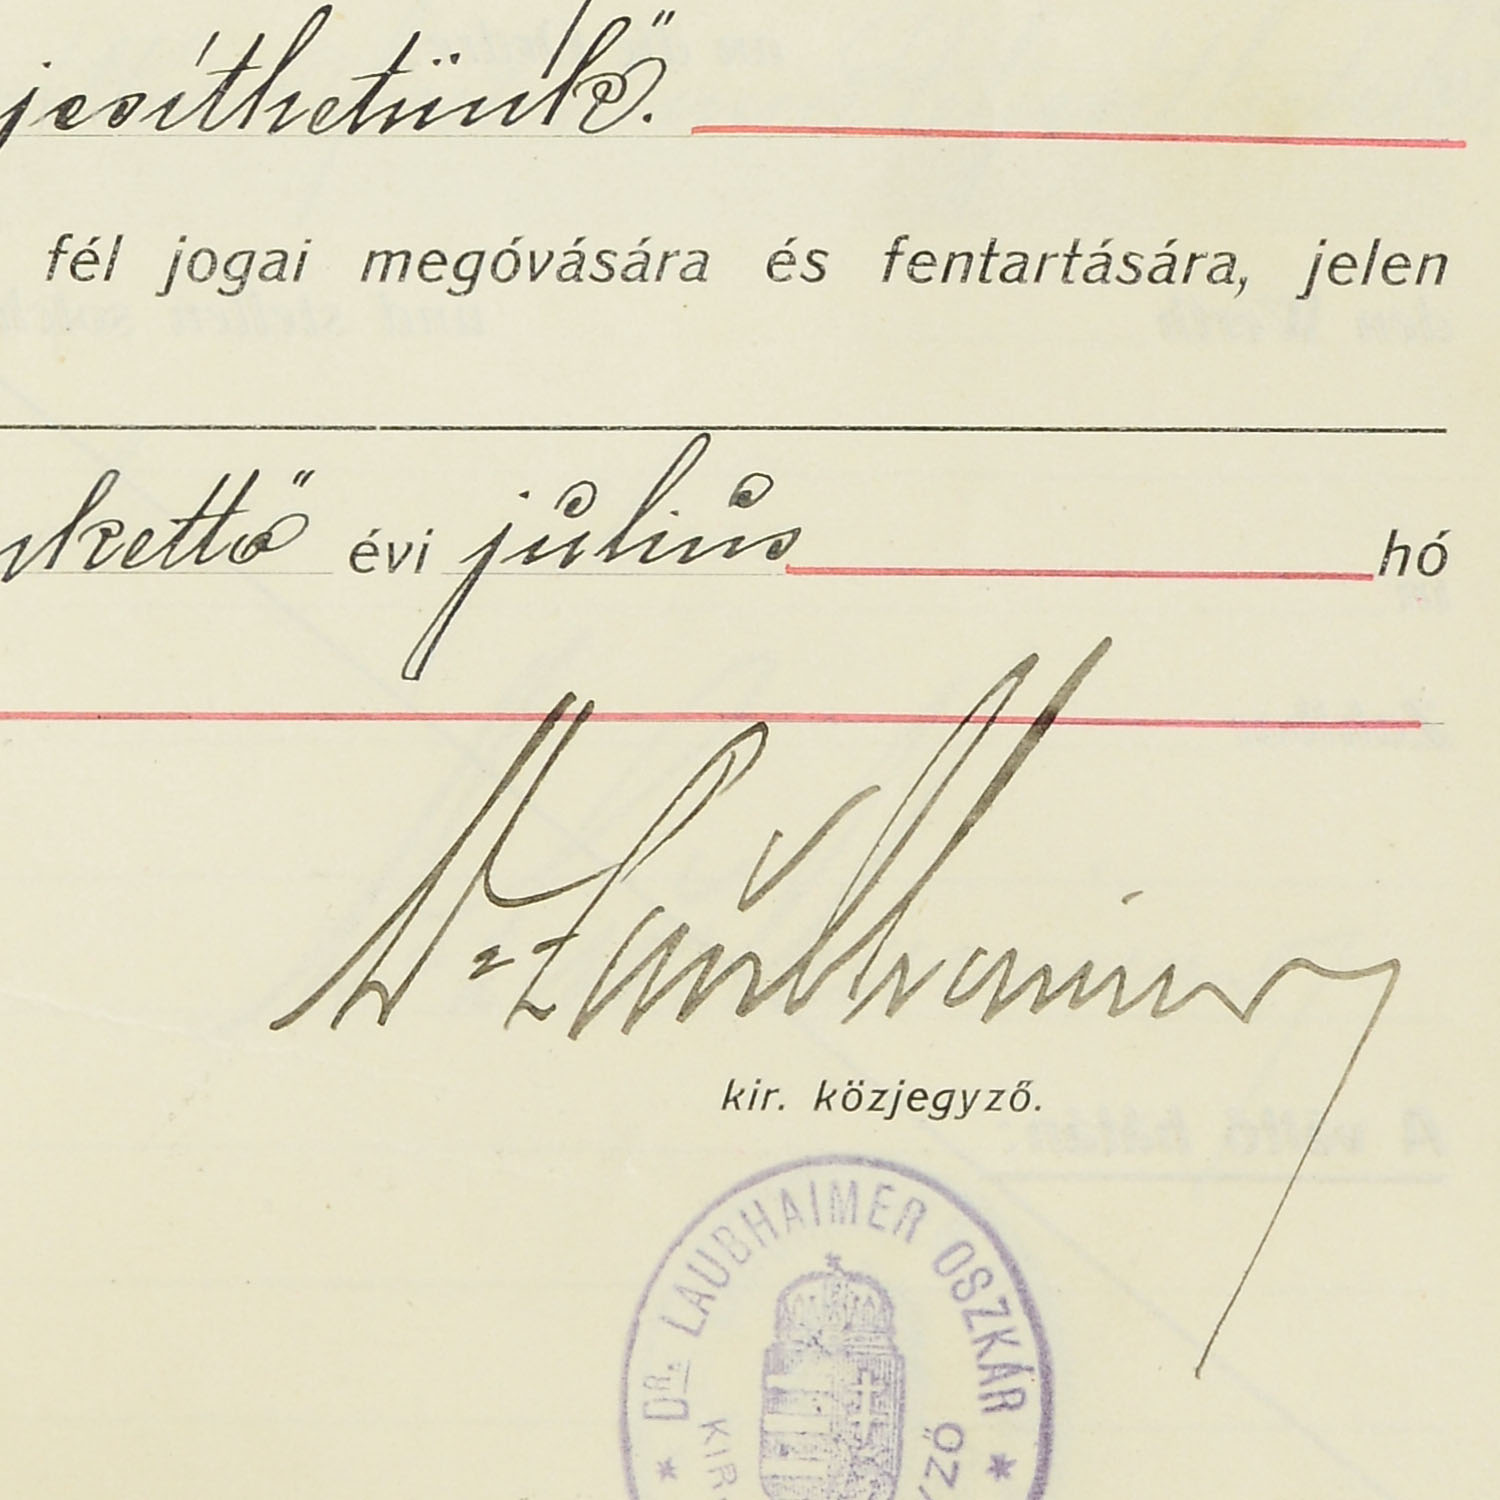 jesíthetünk".
fél jogai megóvására és fentartására, jelen
kettő évi július hó
Dr Laubhaimer
kir. közjegyző.
* DR. LAUBHAIMER OSZKÁR *
KIR